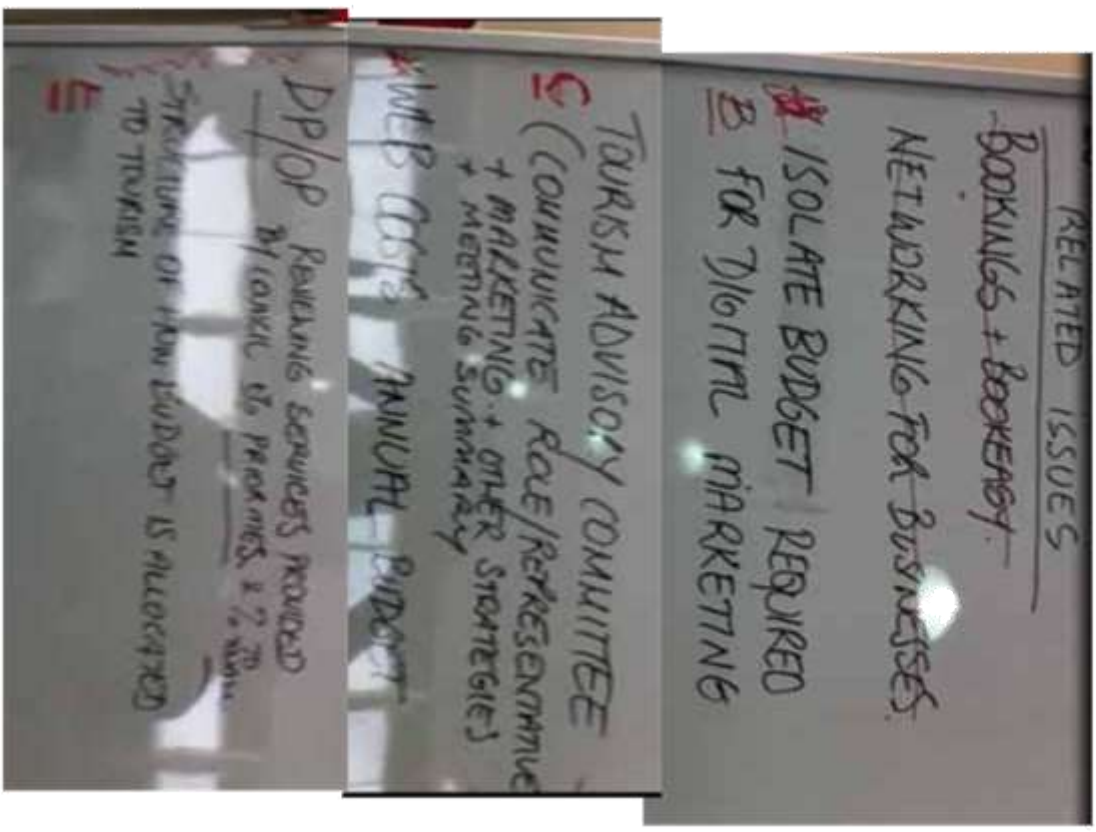 RELATED ISSUES
BOOKINGS + BOOKEASY.
NETWORKING FOR BUSINESSES.
ISOLATE BUDGET REQUIRED
B FOR DIGITAL MARKETING
TOURISM ADVISORY COMMITTEE
C (COMMUNICATE ROLE/REPRESENTATIVE
+ MARKETING + OTHER STRATEGIES
+ MEETING SUMMARY
* WEB COSTS ANNUAL BUDGET
DP/OP REVIEWING SERVICES PROVIDED
BY COUNCIL
STRUCTURE OF HOW BUDGET IS ALLOCATED
TO TOURISM
E